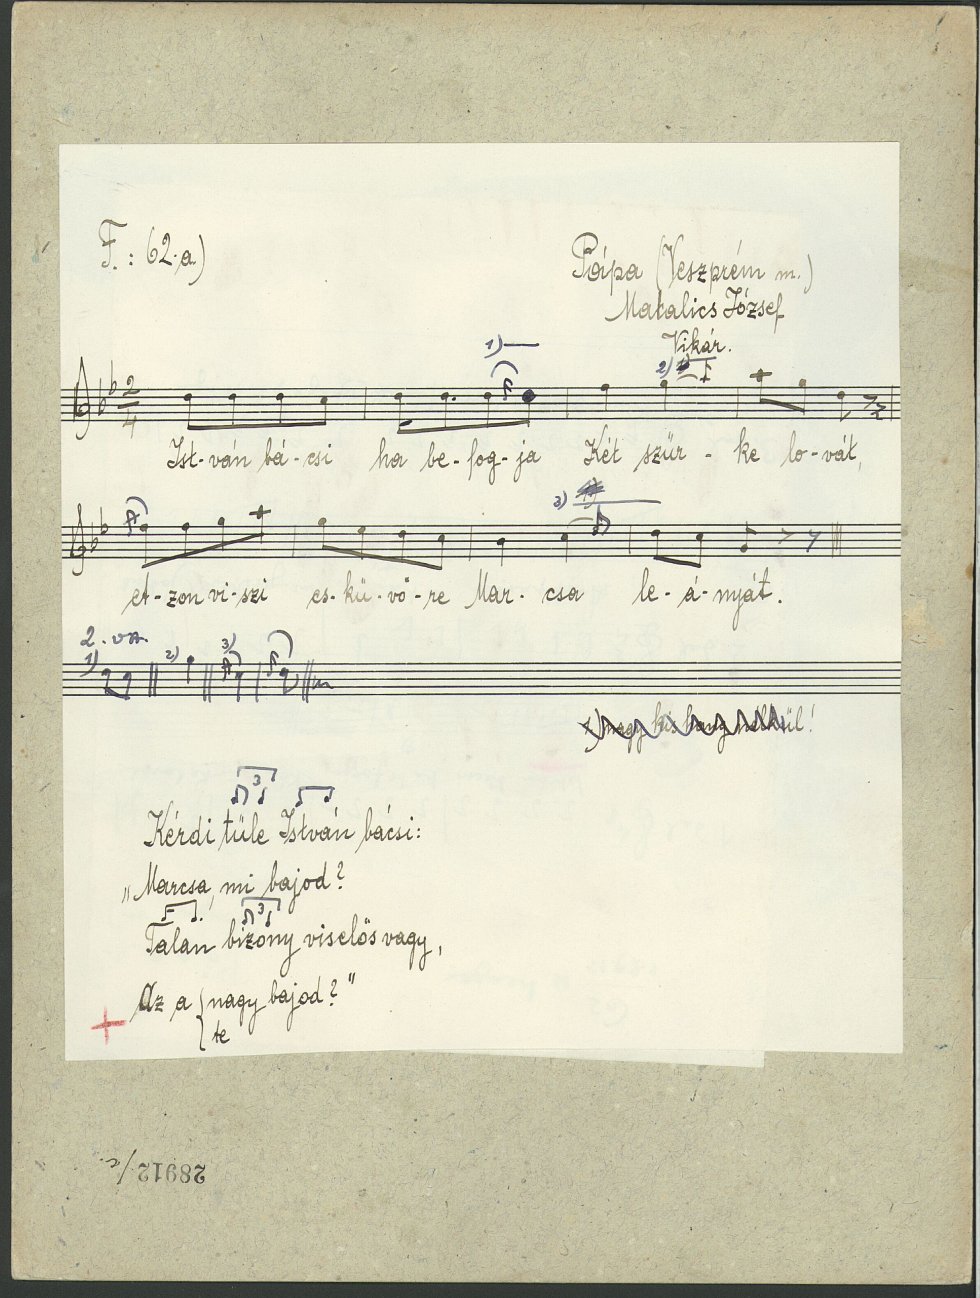 F.: 62.a)
Pápa (Veszprém m.)
Matalics József
Vikár.
1)
2)
2/4
Ist-ván bá-csi ha be-fog-ja Két szür-ke lo-vát,
3)
et-zon vi-szi es-kü-vö-re Mar-csa le-á-nyját.
2. va.
1) 2) 3)
1) nagy kis hang nélkül!
3
Kérdi tüle István bácsi:
„Marcsa, mi bajod?
3
Talán bizony viselös vagy,
Az a {nagy bajod?"
{te
28912/c.